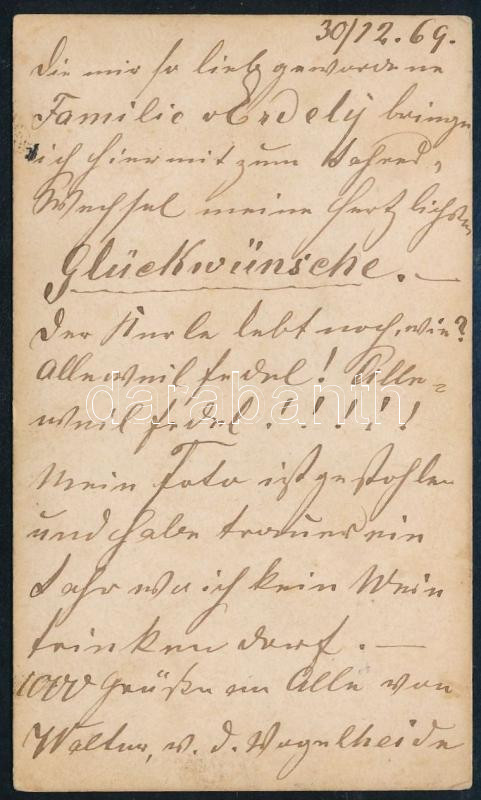 30/12.69.
Die mir so lieb gewordene
Familie Erdelÿ bringe
ich hiermit zum Jahres-
Wechsel meine herzlichsten
Glückwünsche. —
Der Kerle lebt noch, wie?
Alleweil fedel! Alle-
weil fidel!!!!!
Mein Foto ist gestohlen
und habe trauer ein
Jahr wo ich kein Wein
trinken darf. —
1000 Grüße an Alle von
Walter, v. d. Vogelheide
databanth